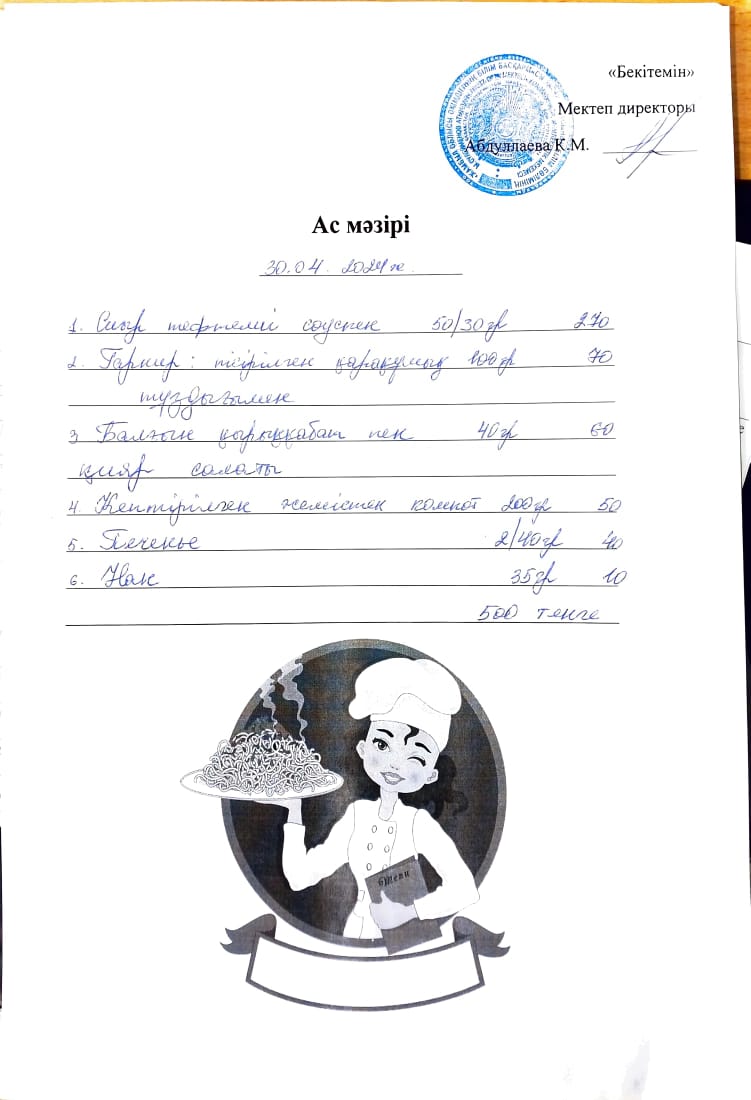 «Бекітемін»
Мектеп директоры
Абдуллаева К.М.
Ас мәзірі
30.04. 2024 ж.
1. Сиыр тефтелиі соуспен 50/30 гр 270
2. Гарнир: пісірілген қарақұмық 100 гр 70
тұздығымен
3 Балғын қырыққабат пен 40 гр 60
қияр салаты
4. Кептірілген жемістен компот 200 гр 50
5. Печенье 2/40 гр 40
6. Нан 35 гр 10
500 тенге
Menu